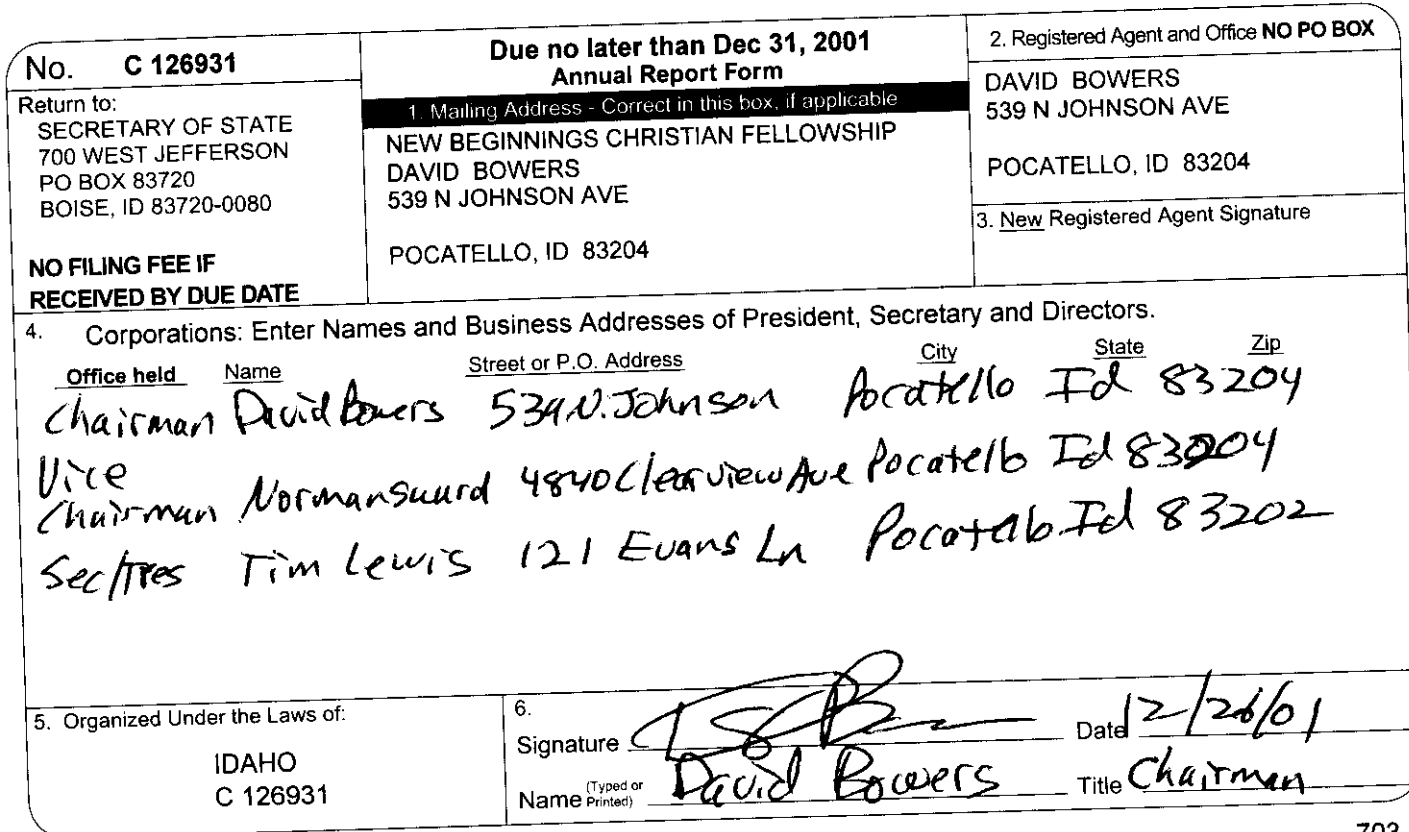 No. C 126931
Return to:
SECRETARY OF STATE
700 WEST JEFFERSON
PO BOX 83720
BOISE, ID 83720-0080
NO FILING FEE IF
RECEIVED BY DUE DATE
Due no later than Dec 31, 2001
Annual Report Form
1. Mailing Address - Correct in this box, if applicable
NEW BEGINNINGS CHRISTIAN FELLOWSHIP
DAVID BOWERS
539 N JOHNSON AVE
POCATELLO, ID 83204
2. Registered Agent and Office NO PO BOX
DAVID BOWERS
539 N JOHNSON AVE
POCATELLO, ID 83204
3. New Registered Agent Signature
4. Corporations: Enter Names and Business Addresses of President, Secretary and Directors.
Office held Name Street or P.O. Address City State Zip
Chairman David Bowers 539 N. Johnson Pocatello Id 83204
Vice
Chairman Norman 4840 Clearview Ave Pocatello Id 83204
Sec/Tres Tim Lewis 121 Evans Ln Pocatello Id 83202
5. Organized Under the Laws of:
IDAHO
C 126931
6.
Signature Date 12/26/01
Name (Typed or Printed) David Bowers Title Chairman